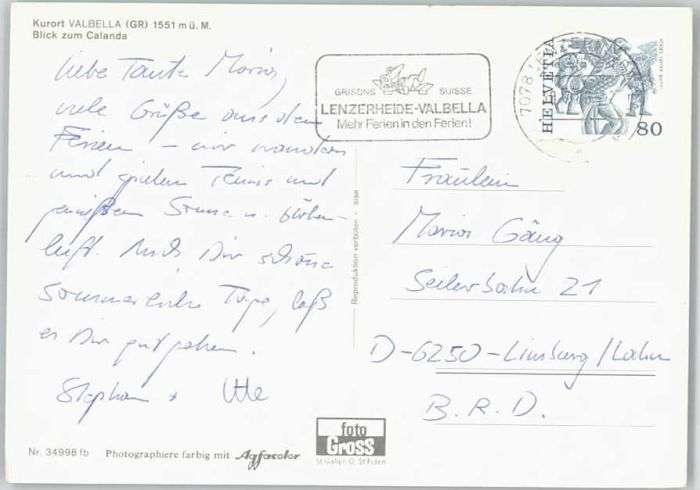 Kurort VALBELLA (GR) 1551 m ü. M.
Blick zum Calanda
Liebe Tante Maria,
viele Grüße aus den
Ferien – wir wandern
und spielen Tennis und
genießen Sonne u. Höhen-
luft. Auch Dir schöne
sommerliche Tage, laß
es Dir gut gehen.
Stephan + Ute
GRISONS SUISSE
LENZERHEIDE-VALBELLA
Mehr Ferien in den Ferien!
7078
HELVETIA
80
Fräulein
Maria Gäng
Seilerbahn 21
D-6250-Limburg/Lahn
B.R.D.
Reproduktion verboten
foto
Gross
St. Gallen
Nr. 34998 fb Photographiere farbig mit Agfacolor